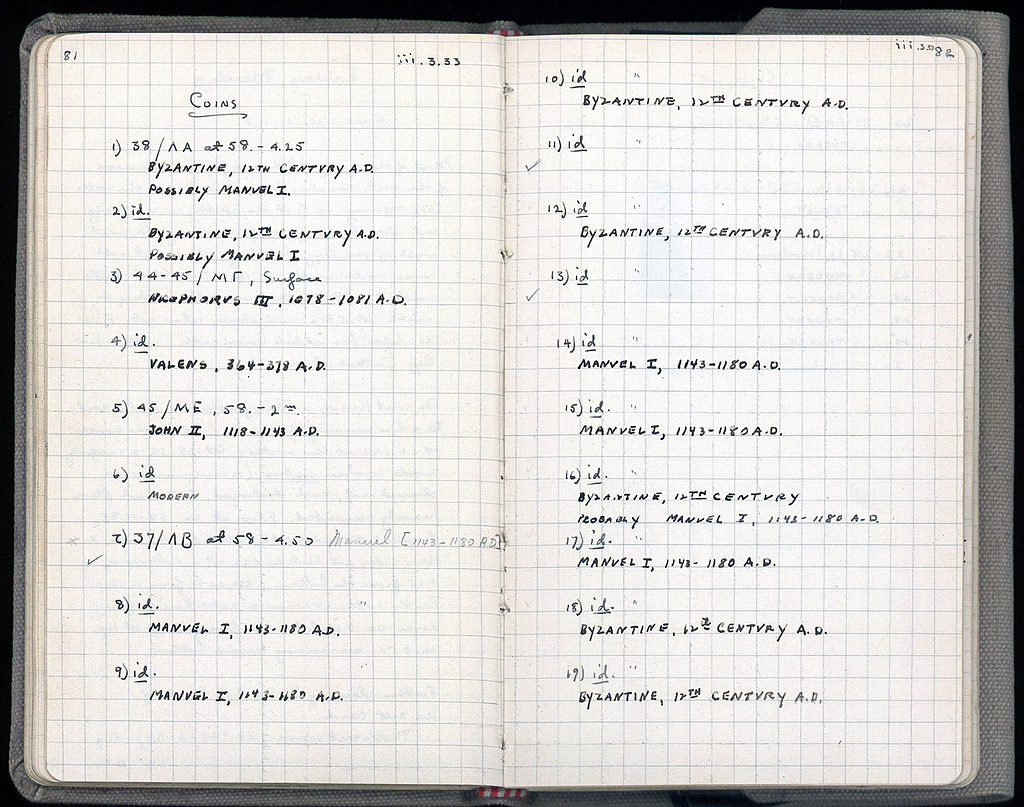 81
iii.3.33
COINS
1) 38/ΛΑ at 58.-4.25
BYZANTINE, 12TH CENTVRY A.D.
POSSIBLY MANVEL I.
2) id.
BYZANTINE, 12TH CENTVRY A.D.
POSSIBLY MANVEL I
3) 44-45/ΜΓ, Surface
NICEPHORVS III, 1078-1081 A.D.
4) id.
VALENS, 364-378 A.D.
5) 45/ΜΕ, 58.-2m.
JOHN II, 1118-1143 A.D.
6) id
MODERN
* 7) 37/ΛΒ at 58-4.50 Manuel [1143-1180 AD]
✓
8) id. "
MANVEL I, 1143-1180 AD.
9) id.
MANVEL I, 1143-1180 A.D.
82
10) id "
BYZANTINE, 12TH CENTVRY A.D.
11) id "
✓
12) id "
BYZANTINE, 12TH CENTVRY A.D.
13) id "
✓
14) id "
MANVEL I, 1143-1180 A.D.
15) id. "
MANVEL I, 1143-1180 A.D.
16) id. "
BYZANTINE, 12TH CENTVRY
PROBABLY MANVEL I, 1143-1180 A.D.
17) id. "
MANVEL I, 1143-1180 A.D.
18) id. "
BYZANTINE, 12th CENTVRY A.D.
19) id. "
BYZANTINE, 12TH CENTVRY A.D.